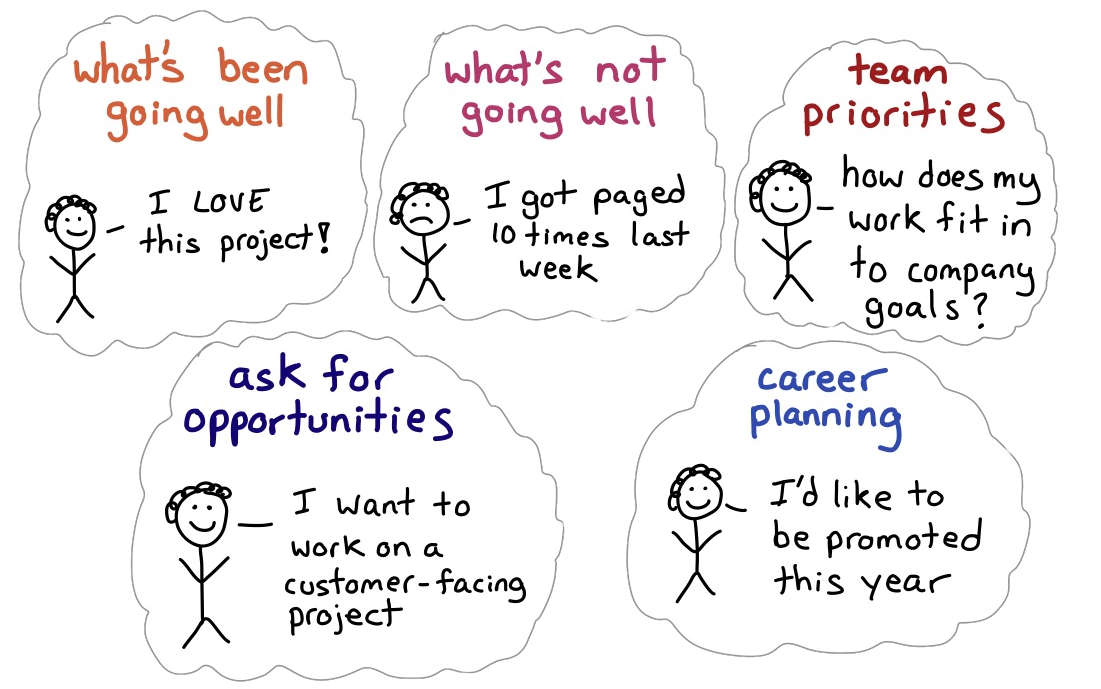 what's been
going well
I LOVE
this project!
what's not
going well
I got paged
10 times last
week
team
priorities
how does my
work fit in
to company
goals?
ask for
opportunities
I want to
work on a
customer-facing
project
career
planning
I'd like to
be promoted
this year